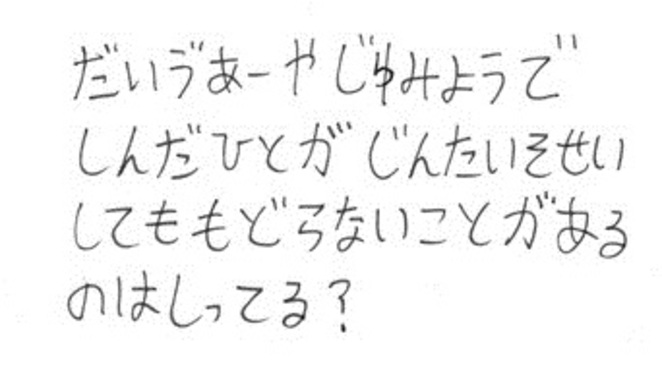 だいゔあーやじゅみようで
しんだひとがじんたいそせい
してももどらないことがある
のはしってる?